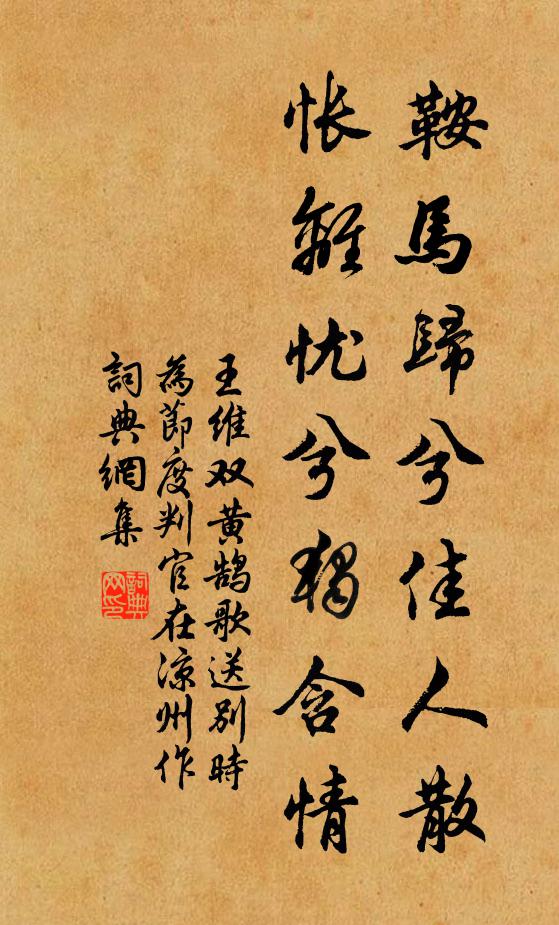 鞍馬歸兮佳人散
悵離忧兮獨含情
王維双黄鵠歌送别時
為節度判官在凉州作
詞典網集
詞典
网印